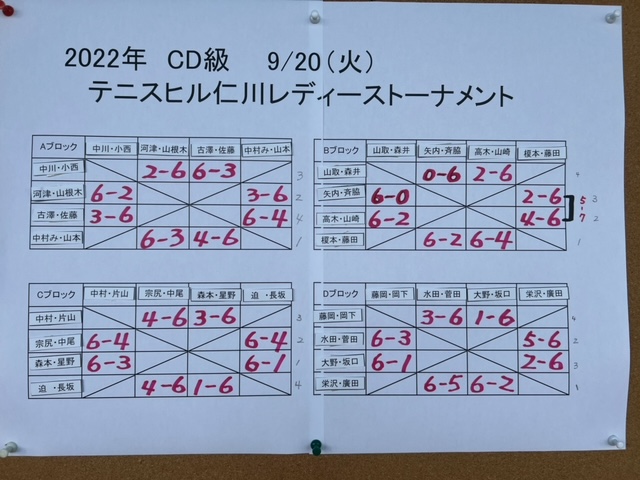 2022年 CD級 9/20(火)
テニスヒル仁川レディーストーナメント
Aブロック 中川・小西 河津・山根木 古澤・佐藤 中村み・山本
中川・小西 2-6 6-3 3
河津・山根木 6-2 3-6 2
古澤・佐藤 3-6 6-4 4
中村み・山本 6-3 4-6 1
Bブロック 山取・森井 矢内・斉脇 高木・山崎 榎本・藤田
山取・森井 0-6 2-6 4
矢内・斉脇 6-0 2-6 3
5-7
高木・山崎 6-2 4-6 2
榎本・藤田 6-2 6-4 1
Cブロック 中村・片山 宗尻・中尾 森本・星野 迫・長坂
中村・片山 4-6 3-6 3
宗尻・中尾 6-4 6-4 2
森本・星野 6-3 6-1 1
迫・長坂 4-6 1-6 4
Dブロック 藤岡・岡下 水田・菅田 大野・坂口 栄沢・廣田
藤岡・岡下 3-6 1-6 4
水田・菅田 6-3 5-6 2
大野・坂口 6-1 2-6 3
栄沢・廣田 6-5 6-2 1